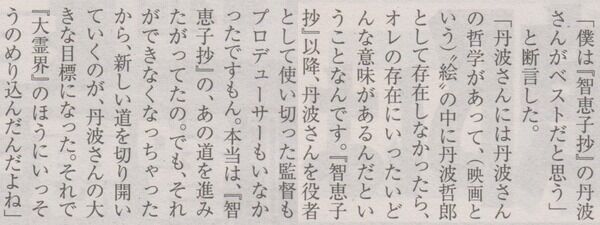 「僕は『智恵子抄』の丹波
さんがベストだと思う」
と断言した。
「丹波さんには丹波さん
の哲学があって、（映画と
いう）〝絵〟の中に丹波哲郎
として存在しなかったら、
オレの存在にいったいど
んな意味があるんだとい
うことなんです。『智恵子
抄』以降、丹波さんを役者
として使い切った監督も
プロデューサーもいなか
ったですもん。本当は、『智
恵子抄』の、あの道を進み
たがってたの。でも、それ
ができなくなっちゃった
から、新しい道を切り開い
ていくのが、丹波さんの大
きな目標になった。それで
『大霊界』のほうにいっそ
うのめり込んだんだよね」